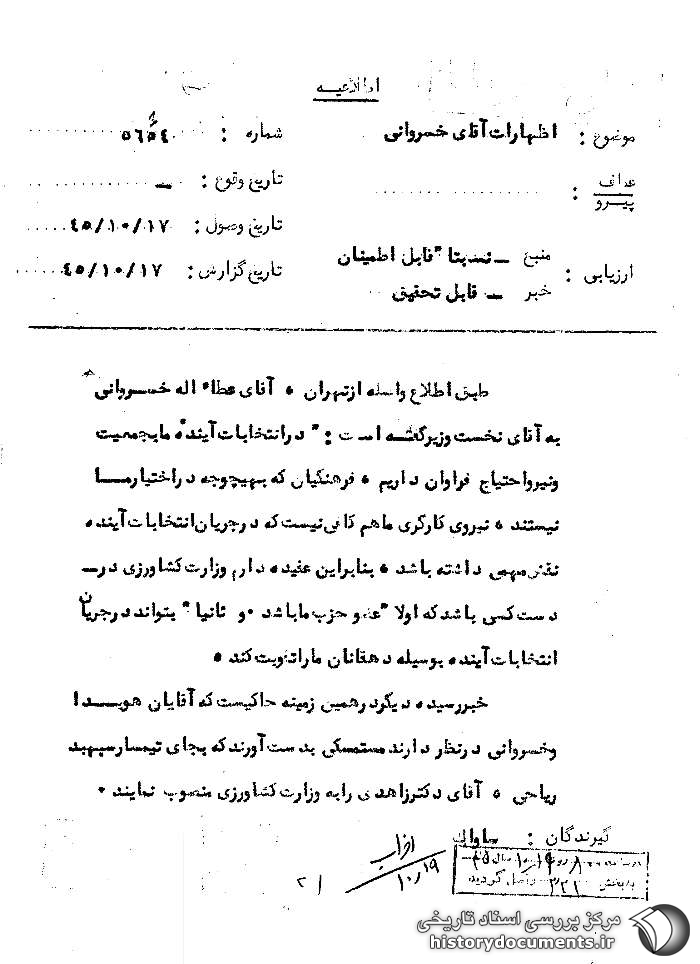 اطلاعیه
موضوع : اظهارات آقای خسروانی
شماره : ٥٦٥٤
عطف
پیرو :
تاریخ وقوع : ــ
تاریخ وصول : ٤٥/١٠/١٧
ارزیابی : منبع ــ نسبتا" قابل اطمینان
خبر ــ قابل تحقیق
تاریخ گزارش : ٤٥/١٠/١٧
طبق اطلاع واصله از تهران ٠ آقای عطاء اله خسروانی
به آقای نخست وزیر گفته است : " در انتخابات آینده ما بجمعیت
و نیرو احتیاج فراوان داریم ٠ فرهنگیان که بهیچوجه در اختیار ما
نیستند ٠ نیروی کارگری ما هم کافی نیست که در جریان انتخابات آینده
نقش مهمی داشته باشد ٠ بنابراین عقیده دارم وزارت کشاورزی در ــ
دست کسی باشد که اولا " عضو حزب ما باشد ٠ و ثانیا " بتواند در جریان
انتخابات آینده بوسیله دهقانان ما را تقویت کند ٠
خبر رسیده دیگر در همین زمینه حاکیست که آقایان هویدا
و خسروانی در نظر دارند مستمسکی بدست آورند که بجای تیمسار سپهبد
ریاحی ٠ آقای دکتر زاهدی را به وزارت کشاورزی منصوب نمایند ٠
گیرندگان : ساواک
احزاب
١٠/١٩
روز ١٩/١٠ سال ٤٥
به بخش ٣٢١ واصل گردید
٢١
مرکز بررسی اسناد تاریخی
historydocuments.ir